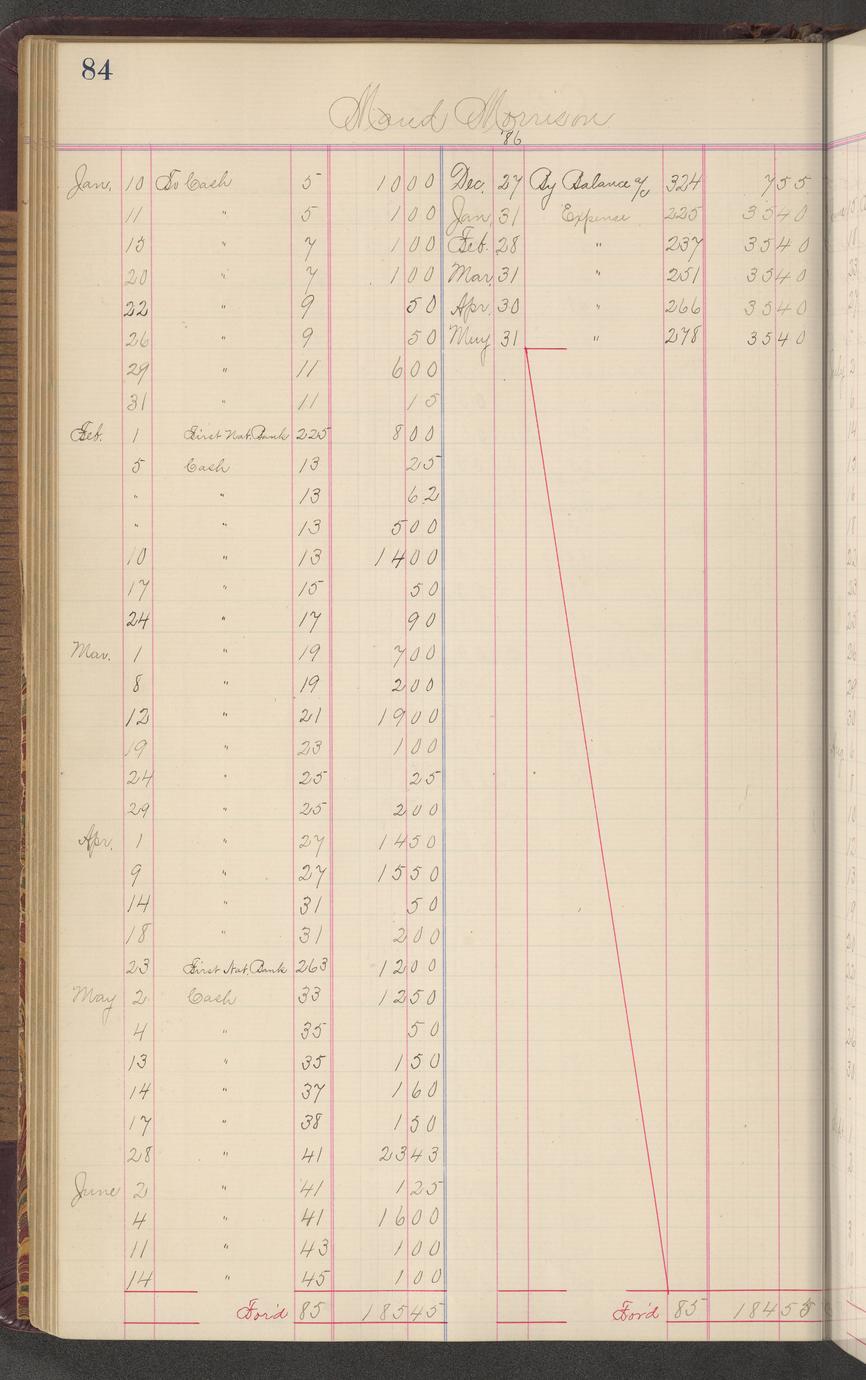 84
Maud Morrison
'86
Jan. 10 To Cash 5 1000 Dec. 27 By Balance a/c 324 755
11 " 5 100 Jan. 31 Expense 225 3540
15 " 7 100 Feb. 28 " 237 3540
20 " 7 100 Mar 31 " 251 3540
22 " 9 50 Apr. 30 " 266 3540
26 " 9 50 May 31 " 278 3540
29 " 11 600
31 " 11 15
Feb. 1 First Nat. Bank 225 800
5 Cash 13 25
" " 13 62
" " 13 500
10 " 13 1400
17 " 15 50
24 " 17 90
Mar. 1 " 19 700
8 " 19 200
12 " 21 1900
19 " 23 100
24 " 25 25
29 " 25 200
Apr. 1 " 27 1450
9 " 27 1550
14 " 31 50
18 " 31 200
23 First Nat. Bank 263 1200
May 2 Cash 33 1250
4 " 35 50
13 " 35 150
14 " 37 160
17 " 38 150
28 " 41 2343
June 2 " 41 125
4 " 41 1600
11 " 43 100
14 " 45 100
For'd 85 18545 For'd 85 18455